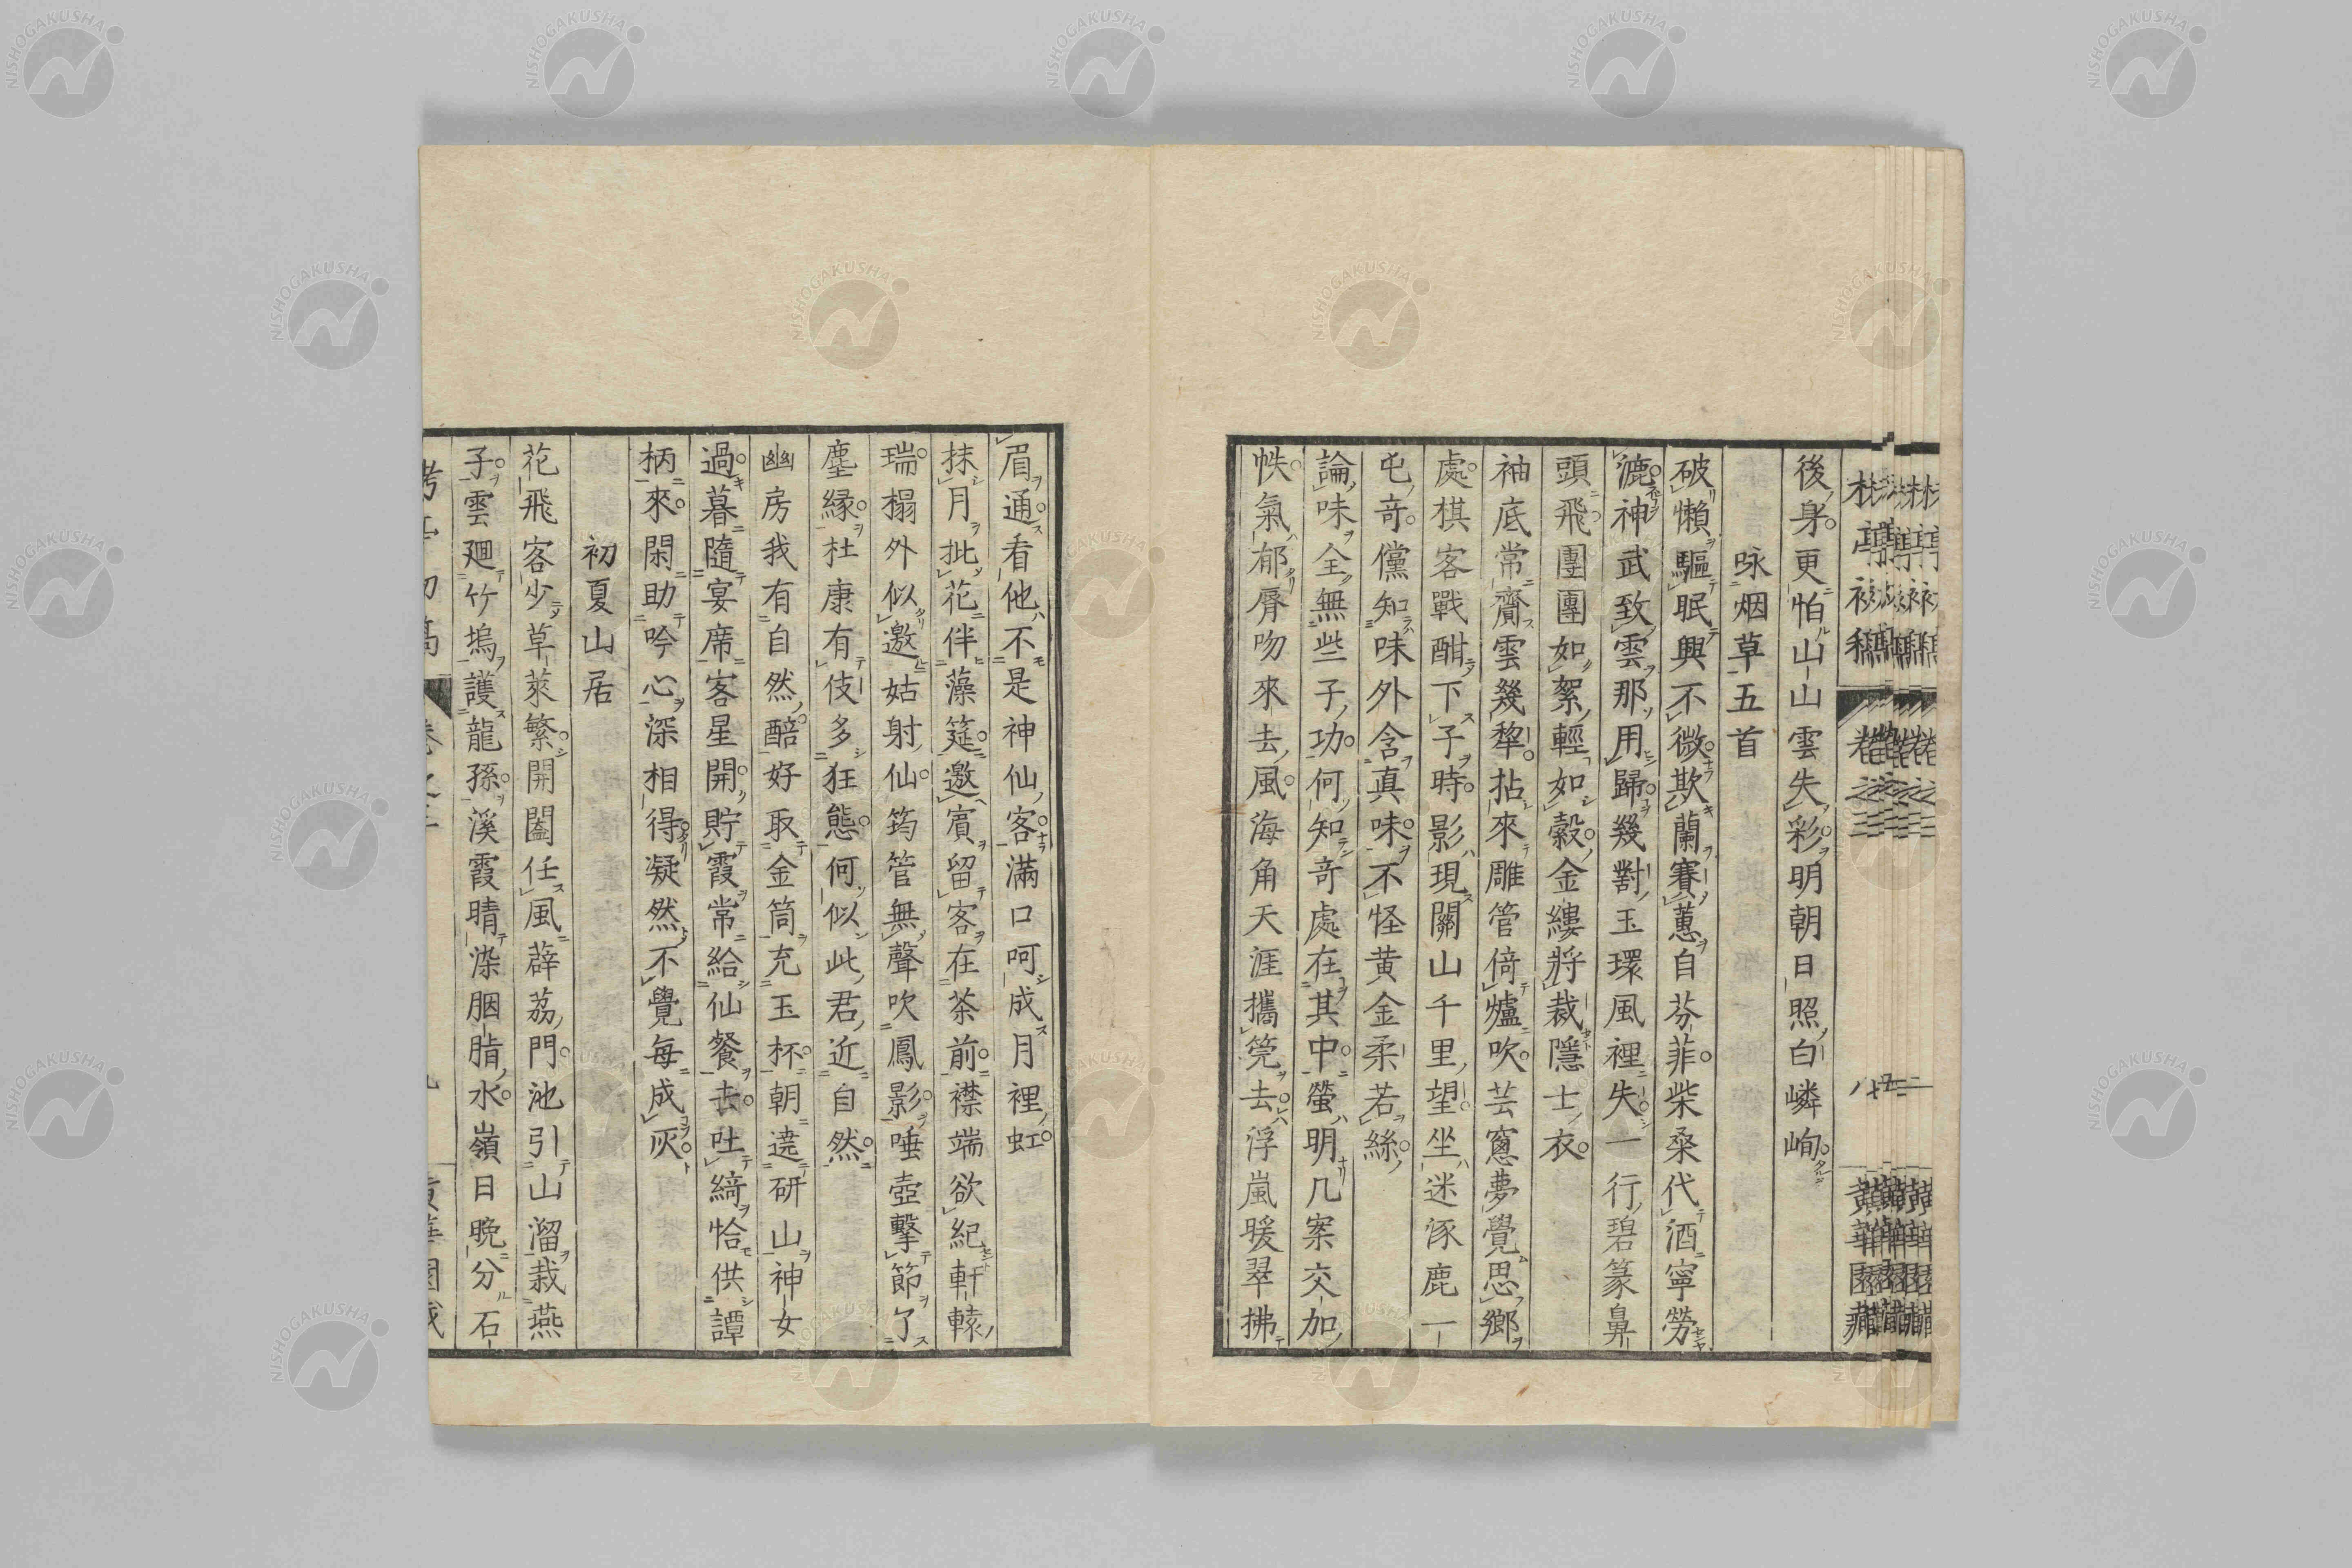 後身更怕山山雲失彩明朝日照白嶙峋
咏烟草五首
破懶驅眠興不微欺蘭賽蕙自芬菲柴桑代酒寧勞
漉神武致雲那用歸幾對玉環風裡失一行碧篆鼻
頭飛團團如絮輕如縠金縷將裁隱士衣
袖底常齎雲幾犂拈來雕管倚爐吹芸窻夢覺思鄉
處棋客戰酣下子時影現關山千里望坐迷涿鹿一
屯奇儻知味外含真味不怪黄金柔若絲
論味全無些子功何知奇處在其中螢明几案交加
帙氣郁脣吻來去風海角天涯攜筦去浮嵐暖翠拂
眉通看他不是神仙客滿口呵成月裡虹
抹月批花伴藻筵邀賔留客在茶前襟端欲紀軒轅
瑞榻外似邀姑射仙筠管無聲吹鳳影唾壺擊節了
塵縁杜康有伎多狂態何似此君近自然
幽房我有自然醅好取金筒充玉杯朝遶研山神女
過暮隨宴席客星開貯霞常給仙餐去吐綺恰供譚
柄來閑助吟心深相得凝然不覺每成灰
初夏山居
花飛客少草萊繁開闔任風薜荔門池引山溜栽燕
子雲廻竹塢護龍孫溪霞晴染胭脂水嶺日晩分石